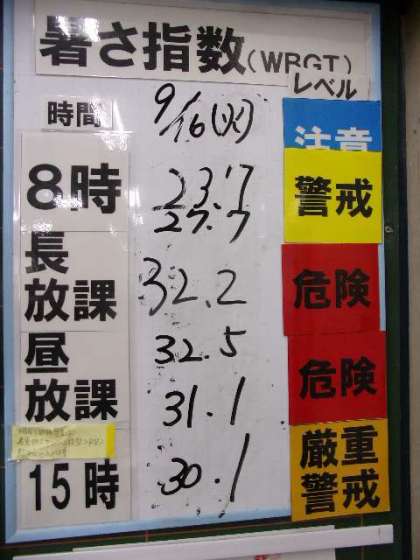 暑さ指数(WBGT)
レベル
時間 9/16(火) 注意
8時 23.7 警戒
27.7
長放課 32.2 危険
32.5
昼放課 31.1 危険
15時 30.1 厳重警戒